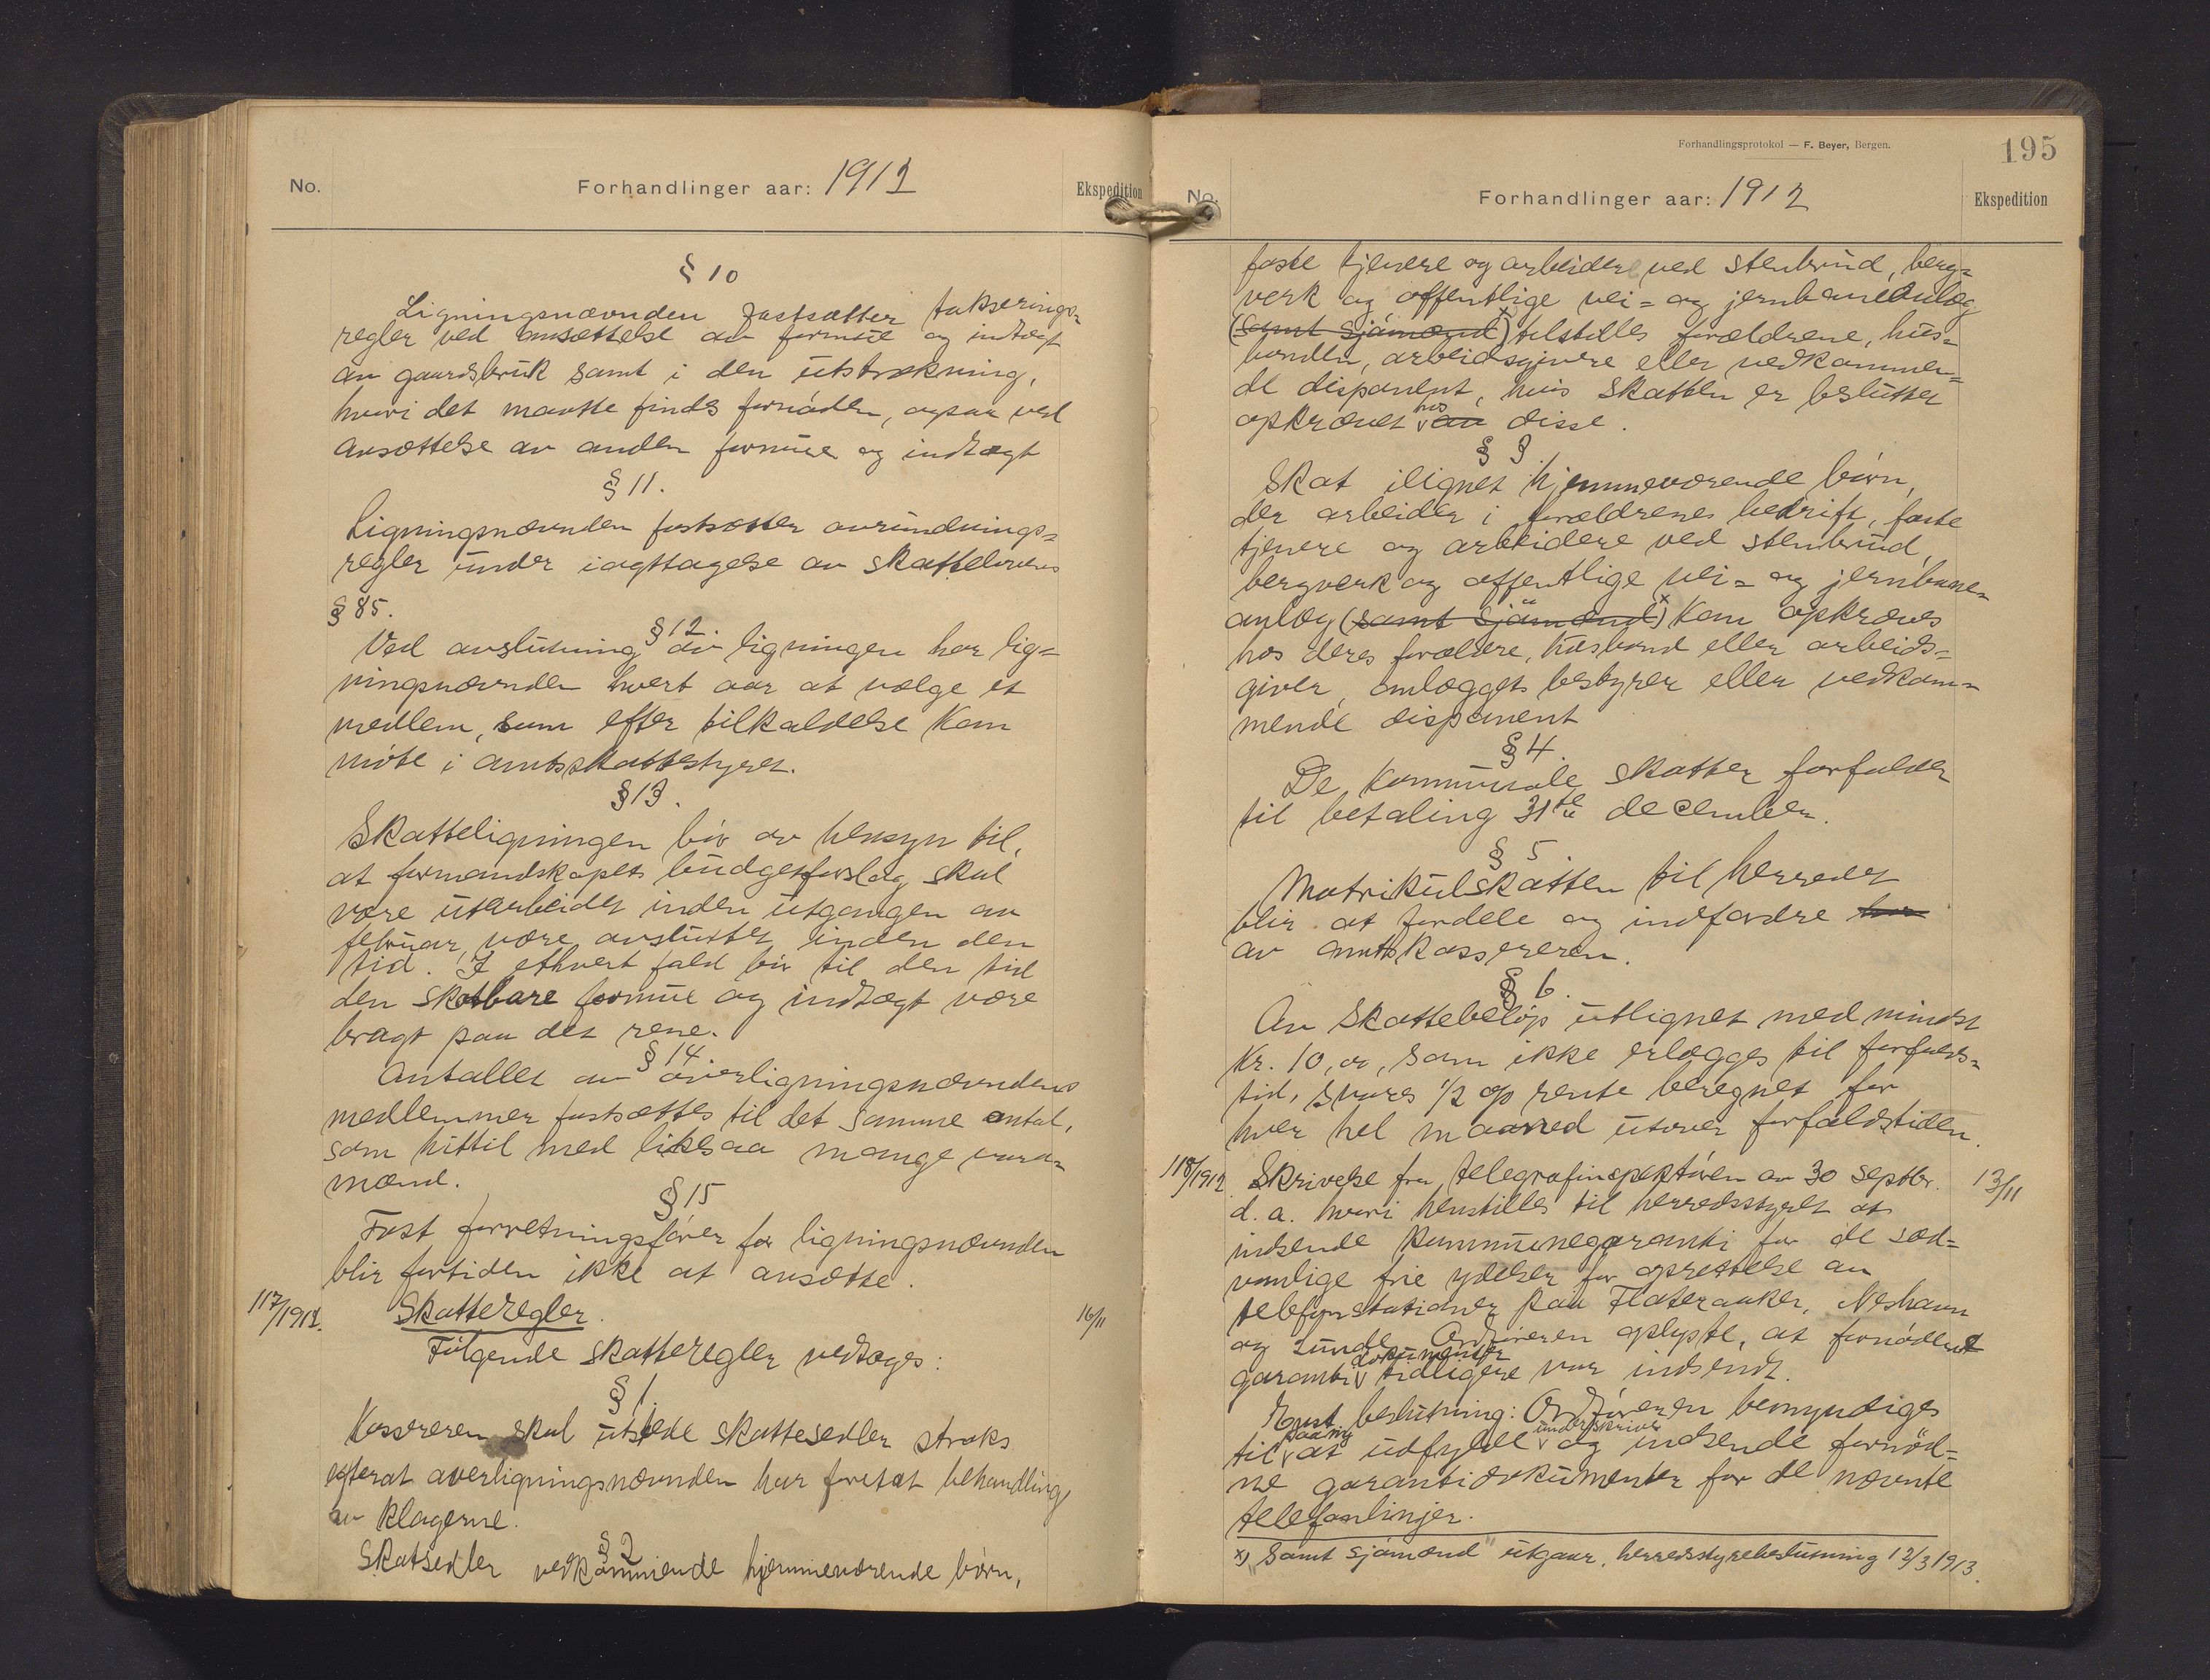 No.
Forhandlinger aar: 1912
Ekspedition
§ 10
Ligningsnævnden fastsætter takserings=
regler ved ansættelse av formue og indtægt
av gaardsbruk samt i den utstrækning,
hvori det maatte findes fornöden, ogsaa ved
ansættelse av anden formue og indtægt
§ 11.
Ligningsnævnden fastsætter avrundnings=
regler under iagttagelse av skattelovens
§ 85.
§ 12.
Ved avslutning av ligningen har lig=
ningsnævnden hvert aar at vælge et
medlem, som efter tilkaldelse kan
möte i amtsskattestyret.
§ 13.
Skatteligningen bör av hensyn til,
at formandskapets budgetforslag skal
være utarbeidet inden utgangen av
februar, være avsluttet inden den
tid. I ethvert fald bör til den tid
den skatbare formue og indtægt være
bragt paa det rene.
§ 14.
Antallet av överligningsnævndens
medlemmer fastsættes til det samme antal,
som hittil med likesaa mange vara=
mænd.
§ 15
Fast forretningsförer for ligningsnævnden
blir fortiden ikke at ansætte.
117/1912. Skatteregler. 16/11
Fölgende skatteregler vedtages:
§ 1.
Kassereren skal utstede skattesedler straks
efterat overligningsnævnden har foretat behandling
av klagerne.
§ 2
Skatsedler vedkommende hjemmeværende börn,
Forhandlingsprotokol — F. Beyer, Bergen.
195
No.
Forhandlinger aar: 1912
Ekspedition
faste tjenere og arbeidere ved stenbrud, berg=
verk og offentlige vei= og jernbaneanlæg
(samt sjömænd)x tilstilles forældrene, hus=
bonden, arbeidsgivere eller vedkommen=
de disponent, hvis skatten er besluttet
opkrævet hos av disse.
§ 3
Skat ilignet hjemmeværende börn,
der arbeider i forældrenes bedrift, faste
tjenere og arbeidere ved stenbrud,
bergverk og offentlige vei= og jernbane=
anlæg (samt sjömænd)x kan opkræves
hos deres forældre, husbond eller arbeids=
giver, anlæggets bestyrer eller vedkom=
mende disponent
§ 4.
De kommunale skatter forfalder
til betaling 31te december.
§ 5
Matrikulskatten til herredet
blir at fordele og indfordre
av amtskassereren.
§ 6.
Av skattebeløp utlignet med mindst
Kr. 10,00, som ikke erlægges til forfalds=
tid, svares 1/2 % rente beregnet for
hver hel maaned utover forfaldstiden.
118/1912 Skrivelse fra telegrafinspektören av 30 septbr. 13/11
d. a. hvori henstilles til herredsstyret at
indsende kommunegaranti for de sæd=
vanlige frie ydelser for oprettelse av
telefonstationer paa Flateraaker, Neshavn
og Sunde. Ordföreren oplyste, at fornödent
garanti dokumenter tidligere var indsendt.
Enst. beslutning: Ordföreren bemyndiges
til paany at udfylde underskrive og indsende fornöd=
ne garantidokumenter for de nævnte
telefonlinjer.
x) "Samt sjömænd" utgaar, herredsstyrebeslutning 12/3 1913.